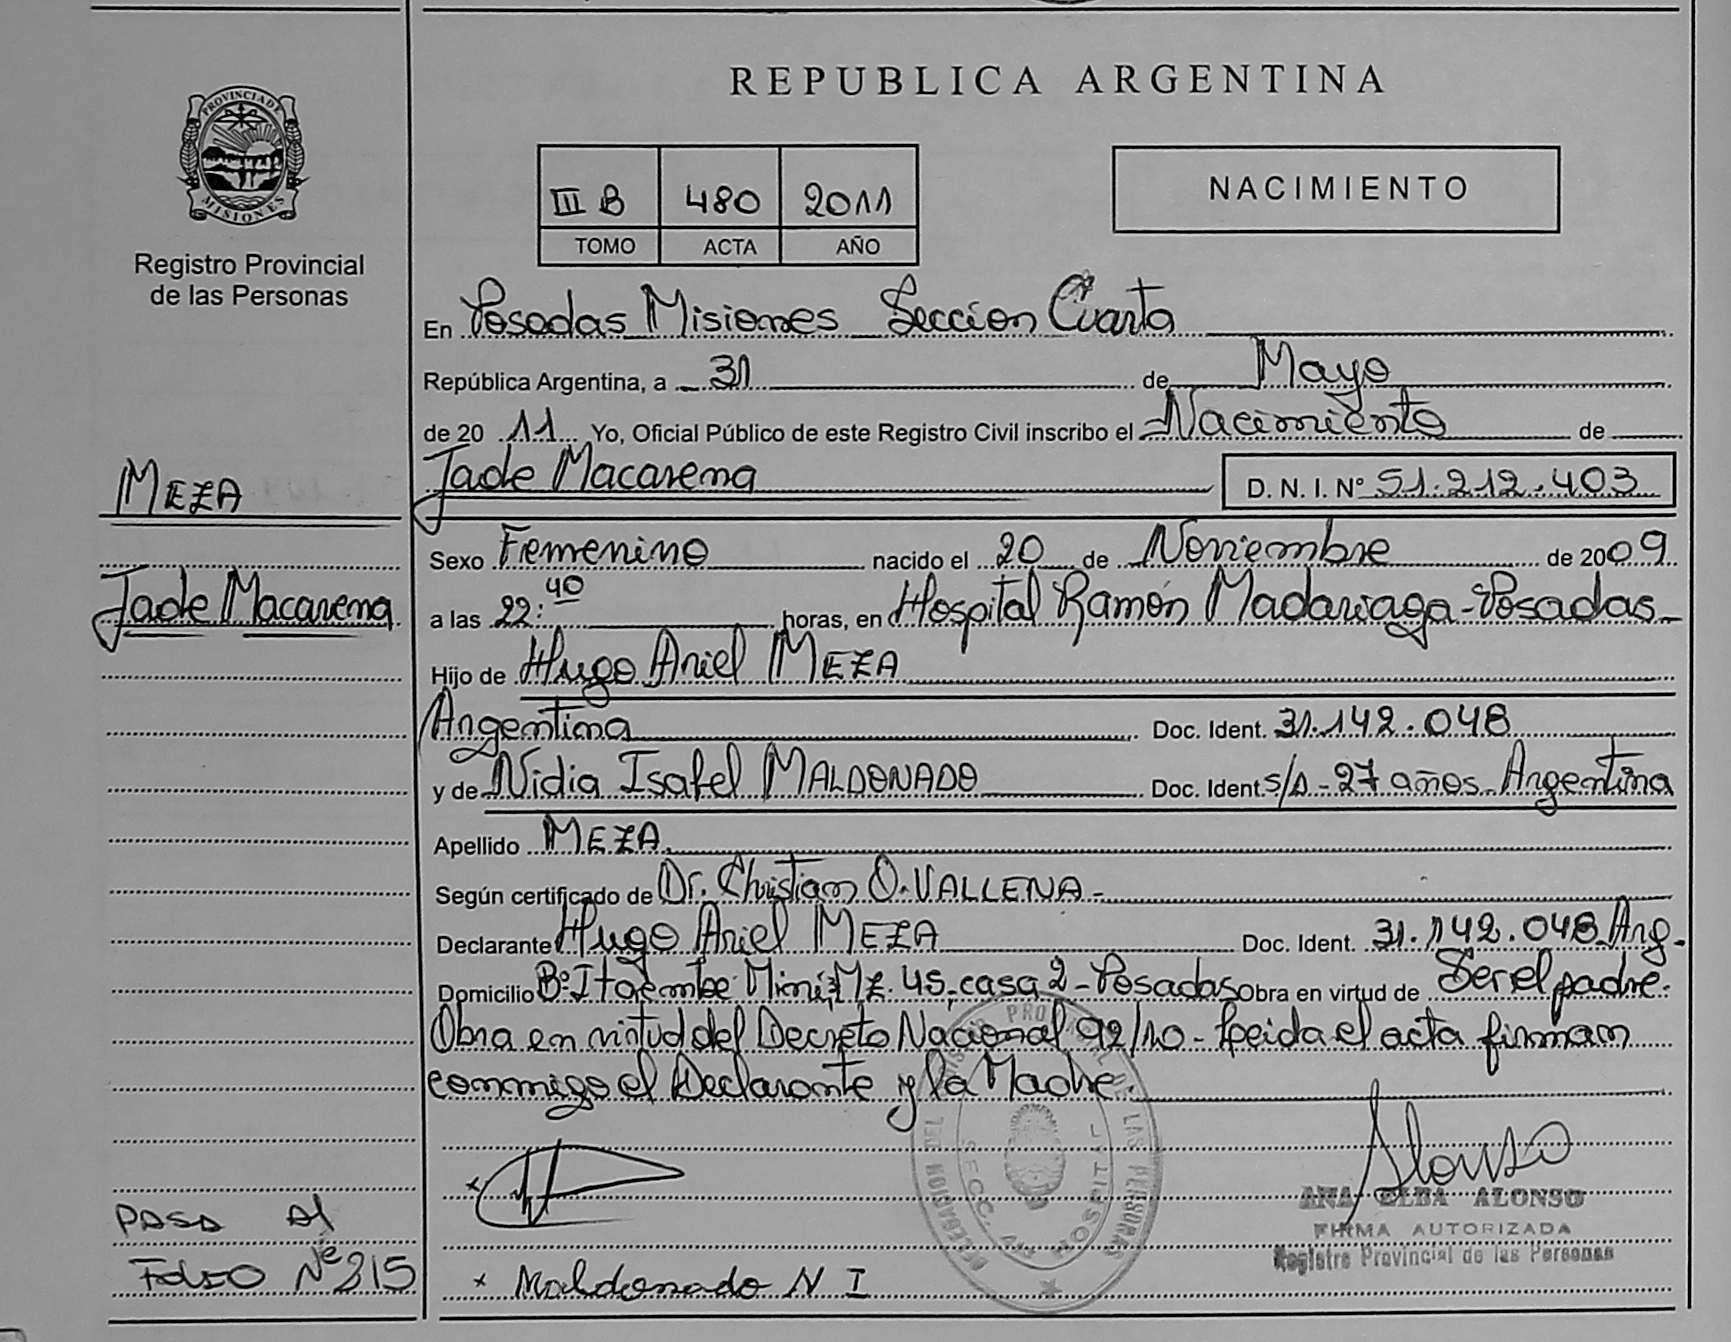 REPUBLICA ARGENTINA
PROVINCIA DE
MISIONES
Registro Provincial
de las Personas
III B 480 2011
TOMO ACTA AÑO
NACIMIENTO
En Posadas Misiones Sección Cuarta
República Argentina, a 31 de Mayo
de 2011 Yo, Oficial Público de este Registro Civil inscribo el Nacimiento de
Jade Macarena D. N. I. Nº 51.212.403
MEZA
Jade Macarena
Sexo Femenino nacido el 20 de Noviembre de 2009
a las 22:40 horas, en Hospital Ramón Madariaga - Posadas -
Hijo de Hugo Ariel MEZA
Argentina Doc. Ident. 31.142.048
y de Nidia Isabel MALDONADO Doc. Ident. s/D - 27 años - Argentina
Apellido MEZA
Según certificado de Dr. Christian O. VALLENA -
Declarante Hugo Ariel MEZA Doc. Ident. 31.142.048 Arg.
Domicilio Bº Itaembe Mini Mz. 45 casa 2 - Posadas Obra en virtud de Ser el padre.
Obra en virtud del Decreto Nacional 92/10 - Leida el acta firman
conmigo el Declarante y la Madre
PASA Al
FOLIO Nº 215
x
x Maldonado N I
SECC. HOSPITAL
Alonso
ANA ELBA ALONSO
FIRMA AUTORIZADA
Registro Provincial de las Personas